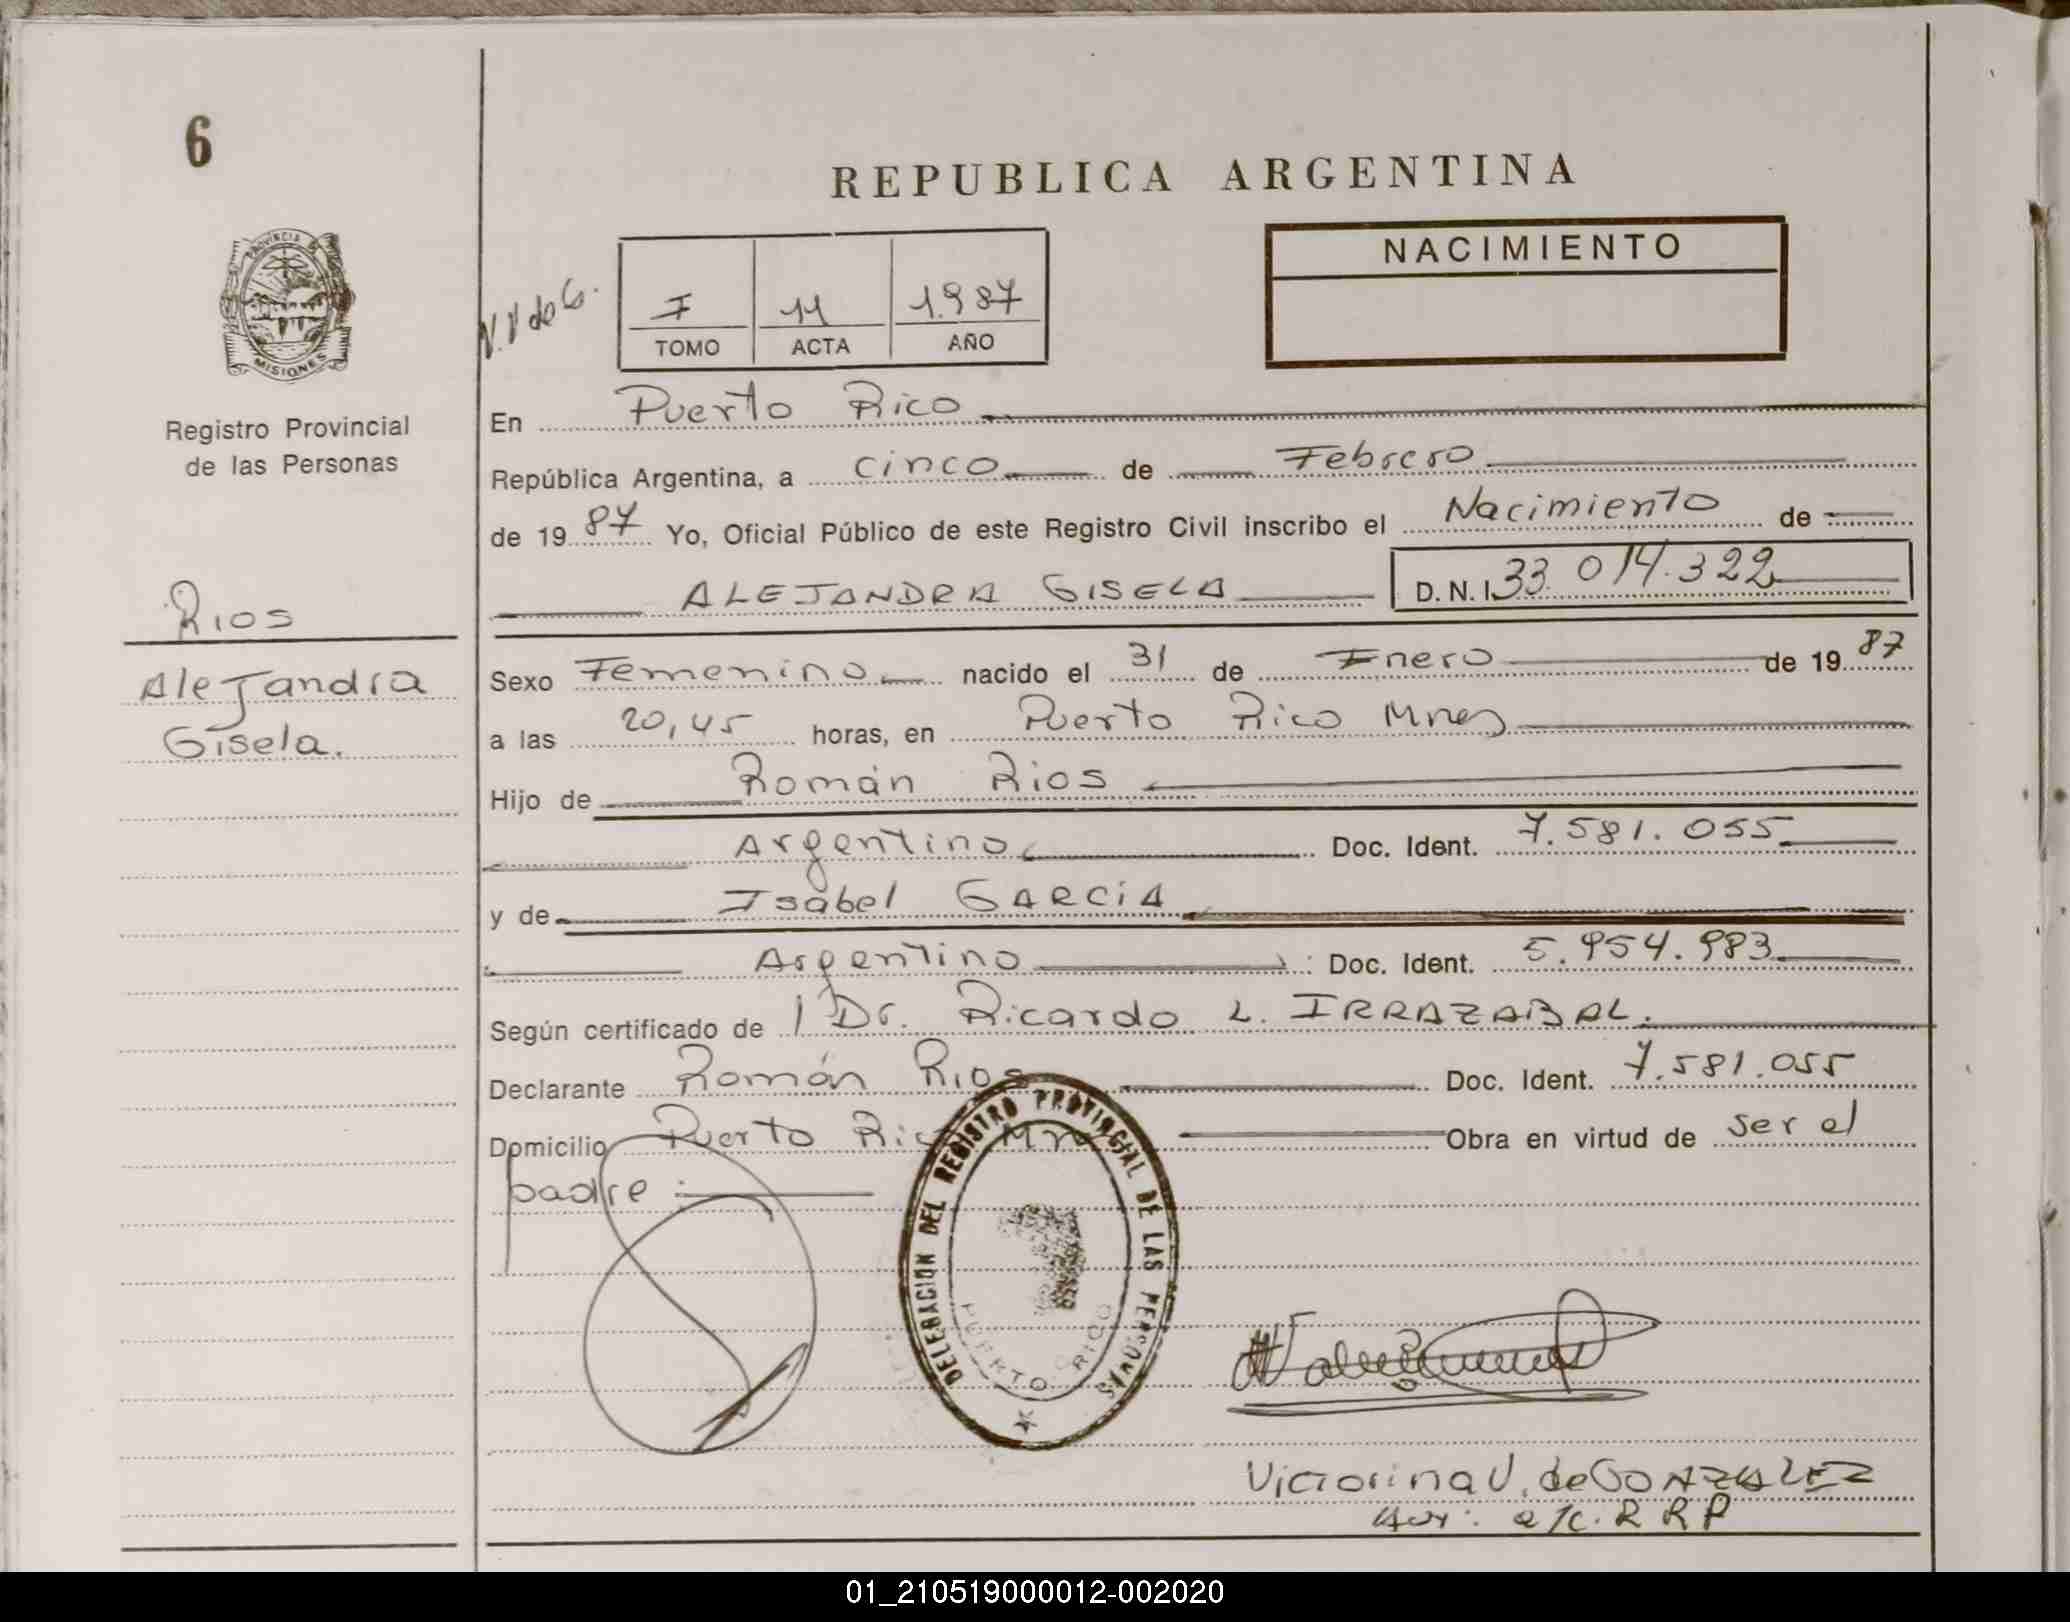 6
REPUBLICA ARGENTINA
NACIMIENTO
PROVINCIA
MISIONES
Registro Provincial
de las Personas
Rios
Alejandra
Gisela.
V. V de G.
I 11 1.987
TOMO ACTA AÑO
En Puerto Rico
República Argentina, a cinco de Febrero
de 1987 Yo, Oficial Público de este Registro Civil inscribo el Nacimiento de
ALEJANDRA GISELA D. N. I. 33.014.322
Sexo Femenino nacido el 31 de Enero de 1987
a las 20,45 horas, en Puerto Rico Mnes
Hijo de Román Rios
Argentino Doc. Ident. 7.581.055
y de Isabel GARCIA
Argentino Doc. Ident. 5.954.983
Según certificado de Dr. Ricardo L. IRRAZABAL.
Declarante Román Rios Doc. Ident. 7.581.055
Domicilio Puerto Rico Mnes Obra en virtud de ser el
padre
DELEGACION DEL REGISTRO PROVINCIAL DE LAS PERSONAS
PUERTO RICO
Victorina V. de GONZALEZ
a/c. R R P
01_210519000012-002020